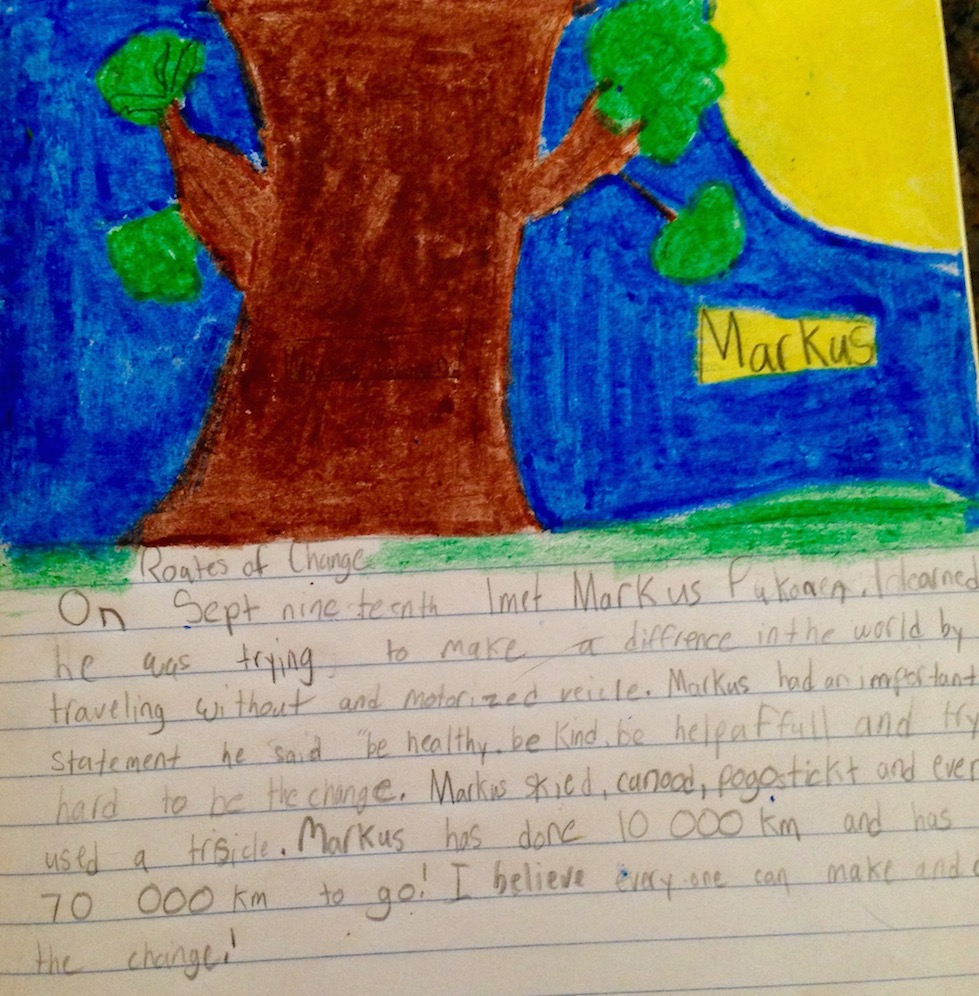 Markus
Routes of Change
On Sept nineteenth I met Markus Pukonen. I learned
he was trying to make a diffrence in the world by
traveling without and motorized veicle. Markus had an important
statement he said "be healthy. be kind. be helpaffull and try
hard to be the change. Markus skied, canoed, pogostickt and even
used a trisicle. Markus has done 10 000 km and has
70 000 km to go! I believe everyone can make and
the change!